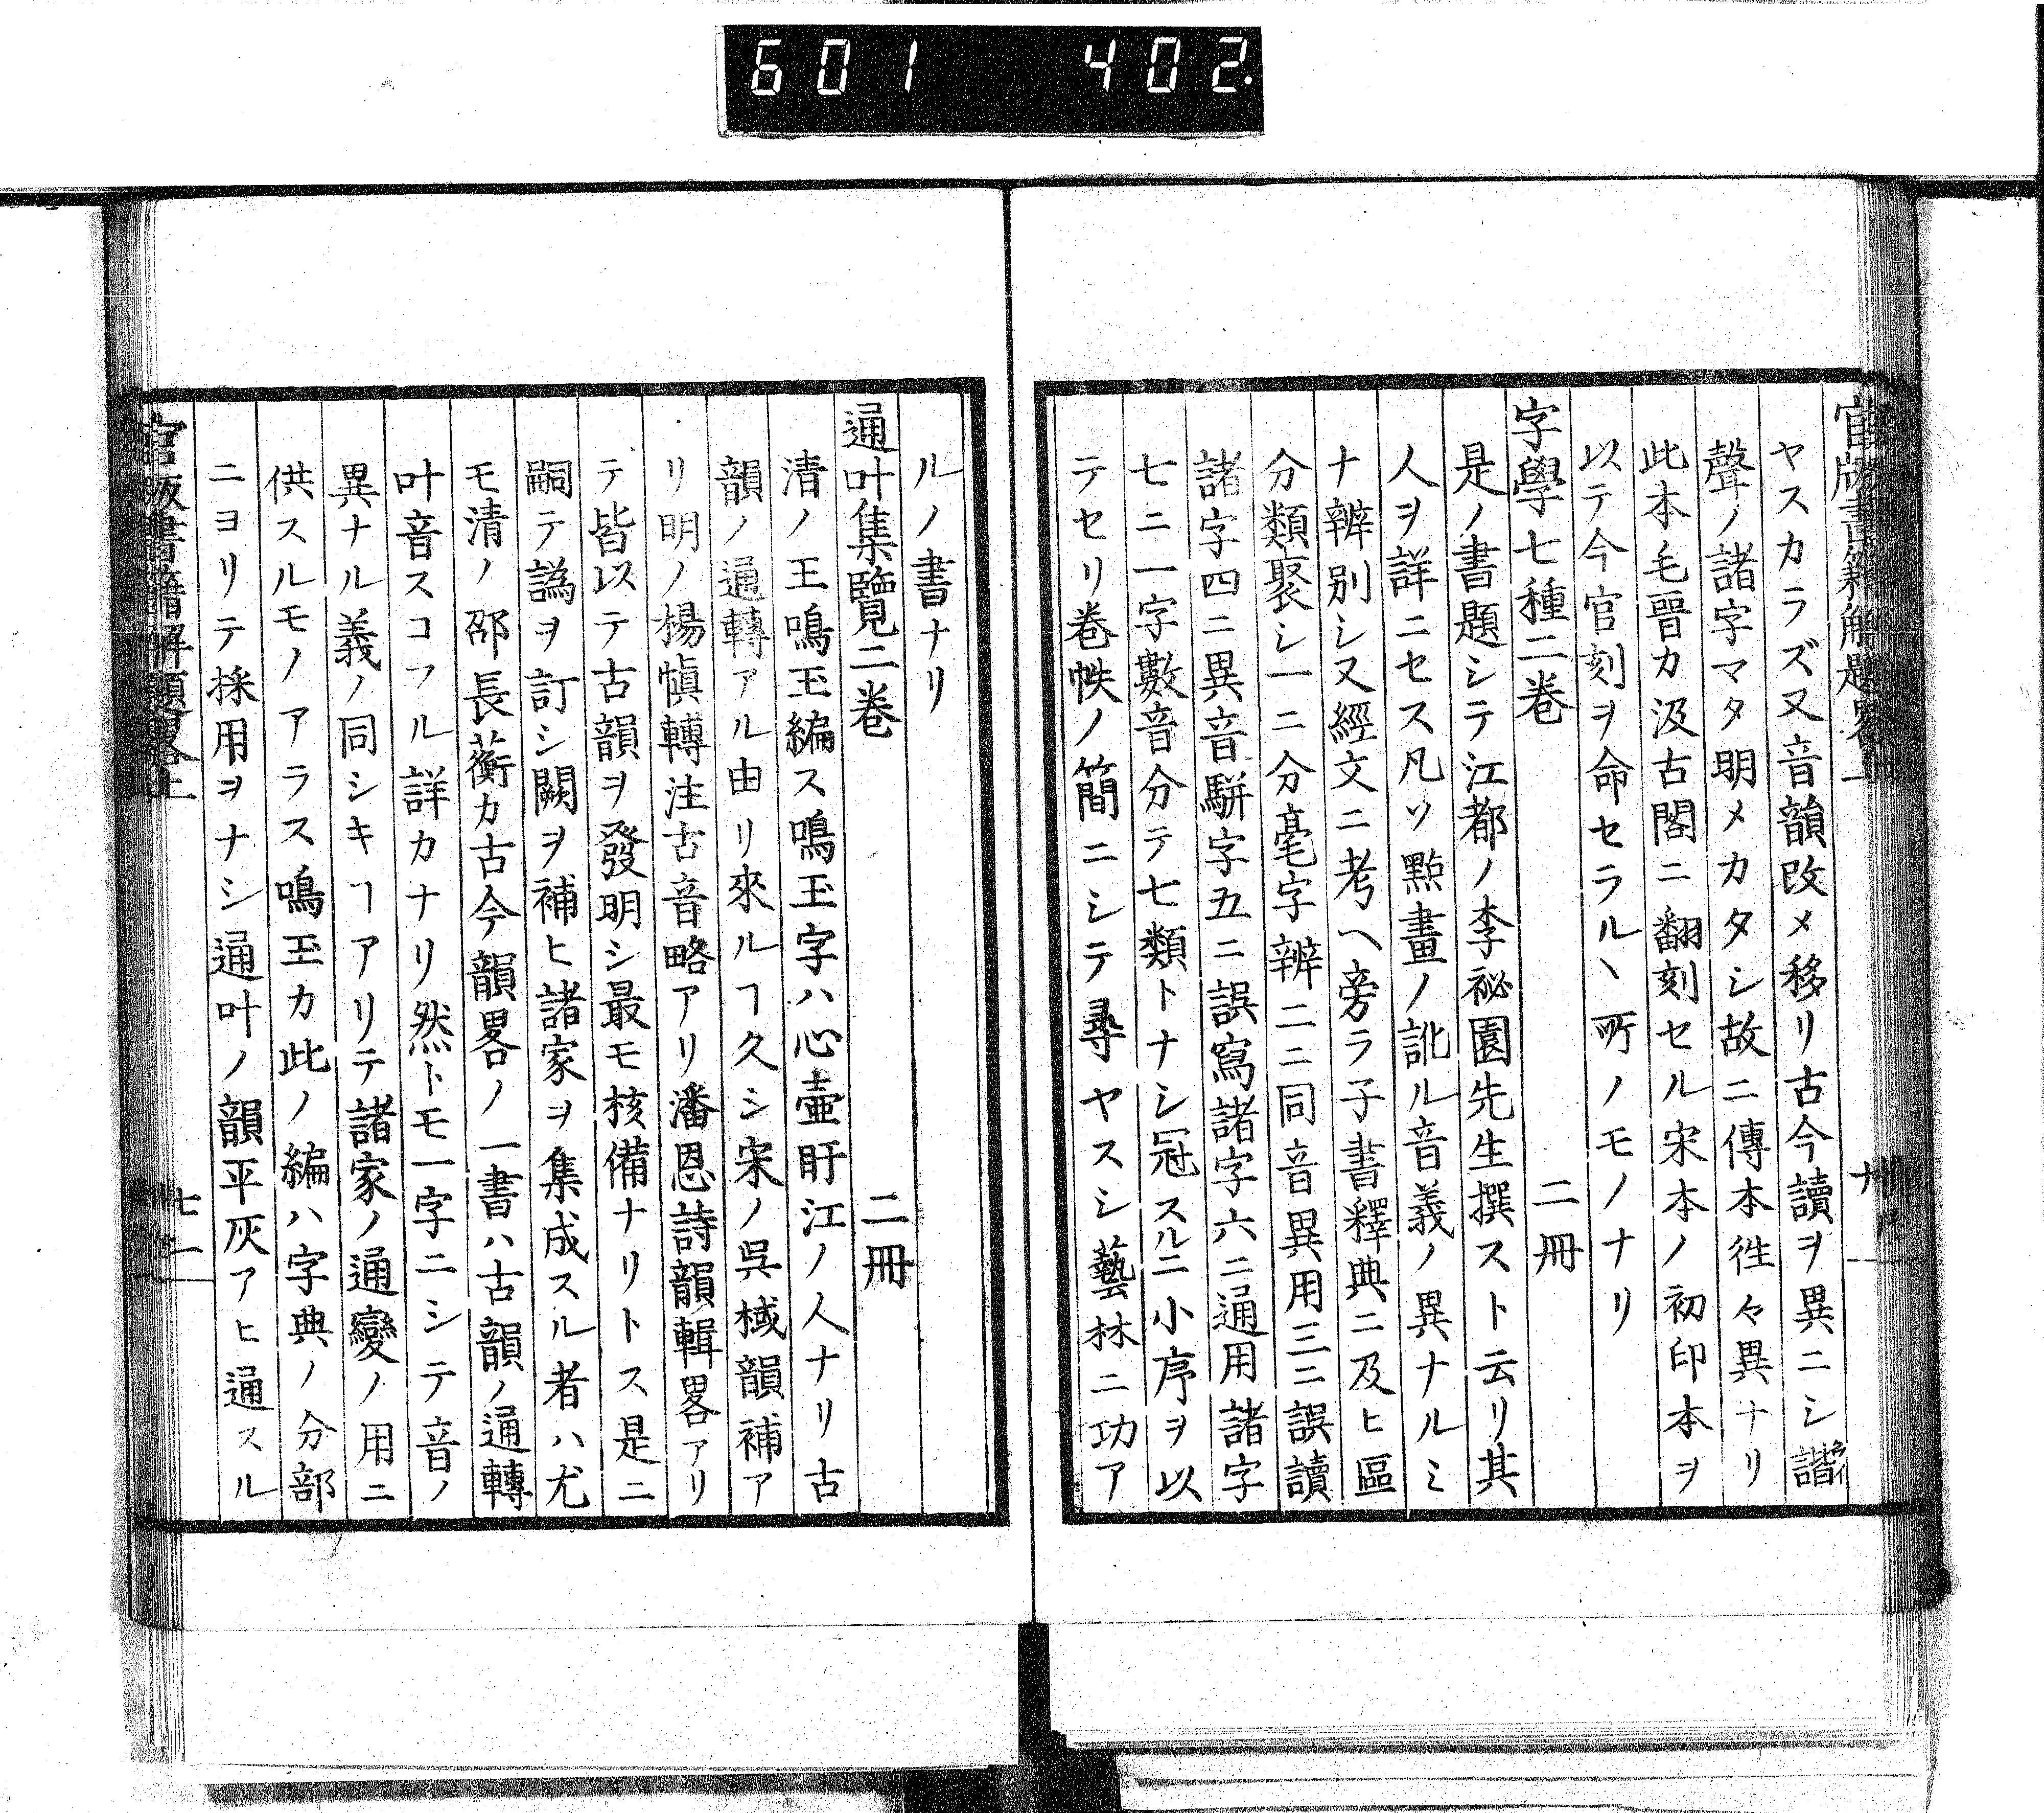 601 402.
ヤスカラズ又音韻改メ移リ古今讀ヲ異ニシ諧
聲ノ諸字マタ明メカタシ故ニ傳本徃々異ナリ
此本毛晉カ汲古閣ニ翻刻セル宋本ノ初印本ヲ
以テ今官刻ヲ命セラルヽ所ノモノナリ
字學七種二卷 二冊
是ノ書題シテ江都ノ李祕園先生撰スト云リ其
人ヲ詳ニセス凡ソ點畫ノ訛ル音義ノ異ナルミ
ナ辨別シ又經文ニ考ヘ旁ラ子書釋典ニ及ヒ區
分類聚シ一ニ分毫字辨二ニ同音異用三ニ誤讀
諸字四ニ異音駢字五ニ誤寫諸字六ニ通用諸字
七ニ一字數音分テ七類トナシ冠スルニ小序ヲ以
テセリ卷帙ノ簡ニシテ尋ヤスシ藝林ニ功ア
ルノ書ナリ
通叶集覽二卷 二冊
清ノ王鳴玉編ス鳴玉字ハ心壷盱江ノ人ナリ古
韻ノ通轉アル由リ來ルヿ久シ宋ノ呉棫韻補ア
リ明ノ楊愼轉注古音略アリ潘恩詩韻輯畧アリ
テ皆以テ古韻ヲ發明シ最モ核備ナリトス是ニ
嗣テ譌ヲ訂シ闕ヲ補ヒ諸家ヲ集成スル者ハ尤
モ清ノ邵長蘅カ古今韻畧ノ一書ハ古韻ノ通轉
叶音スコフル詳カナリ然トモ一字ニシテ音ノ
異ナル義ノ同シキヿアリテ諸家ノ通變ノ用ニ
供スルモノアラス鳴玉カ此ノ編ハ字典ノ分部
ニヨリテ採用ヲナシ通叶ノ韻平灰アヒ通スル
官板書籍解題畧上 七一